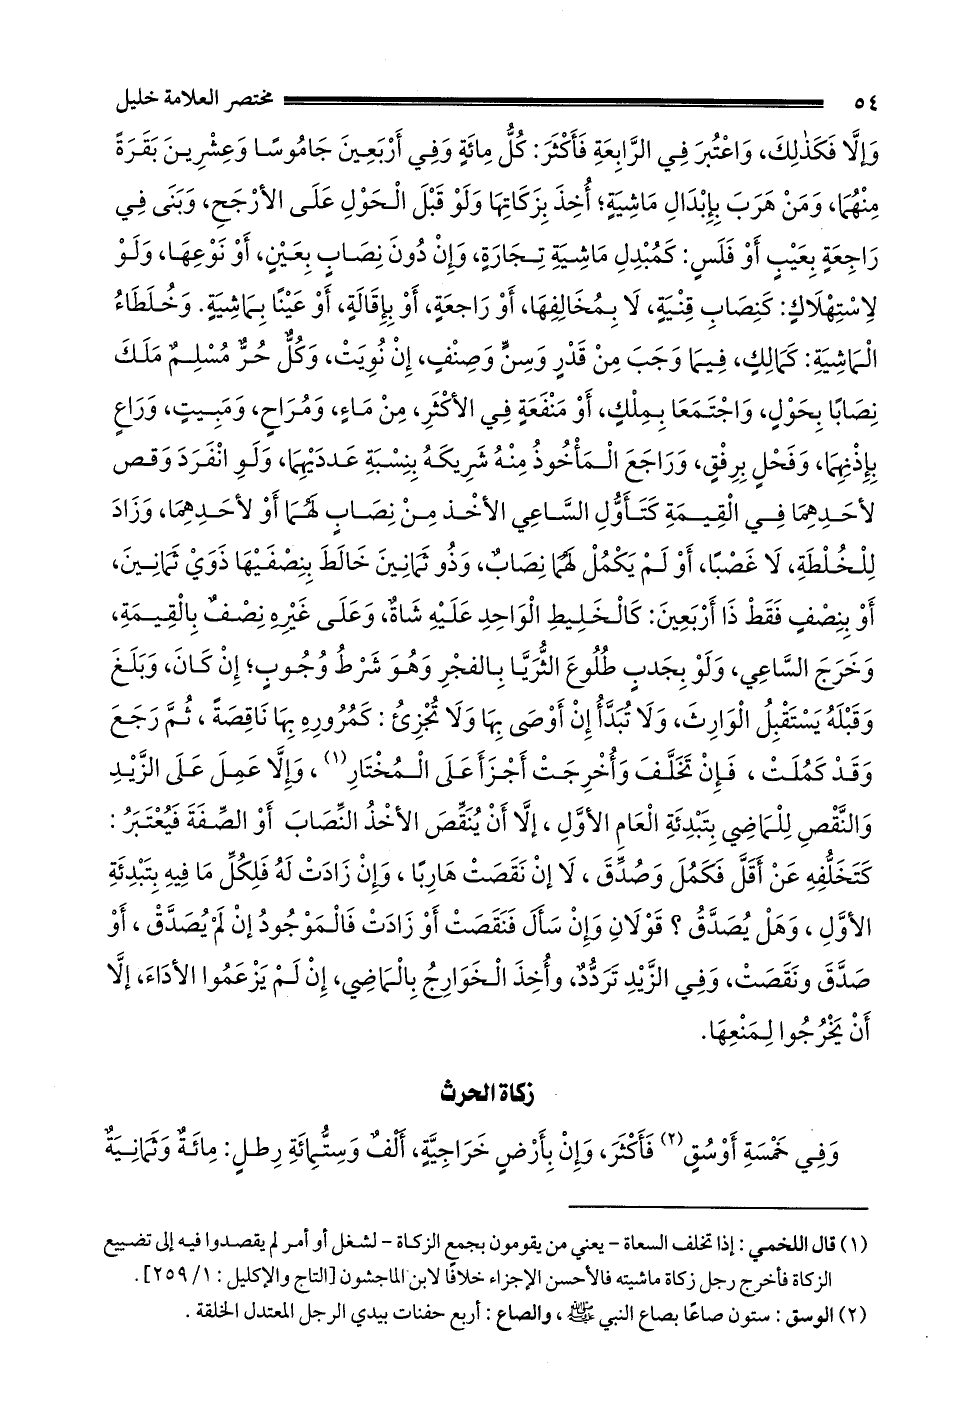 ٥٤ مختصر العلامة خليل
وَإِلَّا فَكَذٰلِكَ، وَاعْتُبِرَ فِي الرَّابِعَةِ فَأَكْثَرَ: كُلُّ مِائَةٍ وَفِي أَرْبَعِينَ جَامُوسًا وَعِشْرِينَ بَقَرَةً
مِنْهُمَا، وَمَنْ هَرَبَ بِإِبْدَالِ مَاشِيَةٍ؛ أُخِذَ بِزَكَاتِهَا وَلَوْ قَبْلَ الْحَوْلِ عَلَى الأَرْجَحِ، وَبَنَى فِي
رَاجِعَةٍ بِعَيْبٍ أَوْ فَلَسٍ: كَمُبْدِلِ مَاشِيَةِ تِجَارَةٍ، وَإِنْ دُونَ نِصَابٍ بِعَيْنٍ، أَوْ نَوْعِهَا، وَلَوْ
لِاسْتِهْلَاكٍ: كَنِصَابِ قِنْيَةٍ، لَا بِمُخَالِفِهَا، أَوْ رَاجِعَةٍ، أَوْ بِإِقَالَةٍ، أَوْ عَيْنًا بِمَاشِيَةٍ. وَخُلَطَاءُ
الْمَاشِيَةِ: كَمَالِكٍ، فِيمَا وَجَبَ مِنْ قَدْرٍ وَسِنٍّ وَصِنْفٍ، إِنْ نُوِيَتْ، وَكُلٌّ حُرٌّ مُسْلِمٌ مَلَكَ
نِصَابًا بِحَوْلٍ، وَاجْتَمَعَا بِمِلْكٍ، أَوْ مَنْفَعَةٍ فِي الأَكْثَرِ، مِنْ مَاءٍ، وَمُرَاحٍ، وَمَبِيتٍ، وَرَاعٍ
بِإِذْنِهِمَا، وَفَحْلٍ بِرِفْقٍ، وَرَاجَعَ الْمَأْخُوذُ مِنْهُ شَرِيكَهُ بِنِسْبَةِ عَدَدَيْهِمَا، وَلَوِ انْفَرَدَ وَقَص
لأَحَدِهِمَا فِي الْقِيمَةِ كَتَأَوُّلِ السَّاعِي الأَخْذَ مِنْ نِصَابٍ لَهُمَا أَوْ لأَحَدِهِمَا، وَزَادَ
لِلْخُلْطَةِ، لَا غَصْبًا، أَوْ لَمْ يَكْمُلْ لَهُمَا نِصَابٌ، وَذُو ثَمَانِينَ خَالَطَ بِنِصْفَيْهَا ذَوَيْ ثَمَانِينَ،
أَوْ بِنِصْفٍ فَقَطْ ذَا أَرْبَعِينَ: كَالْخَلِيطِ الْوَاحِدِ عَلَيْهِ شَاةٌ، وَعَلَى غَيْرِهِ نِصْفٌ بِالْقِيمَةِ،
وَخَرَجَ السَّاعِي، وَلَوْ بِجَدْبٍ طُلُوعَ الثُّرَيَّا بِالفَجْرِ وَهُوَ شَرْطُ وُجُوبٍ؛ إِنْ كَانَ، وَبَلَغَ
وَقَبْلَهُ يَسْتَقْبِلُ الْوَارِثُ، وَلَا تُبَدَّأُ إِنْ أَوْصَى بِهَا وَلَا تُجْزِئُ : كَمُرُورِهِ بِهَا نَاقِصَةً ، ثُمَّ رَجَعَ
وَقَدْ كَمُلَتْ ، فَإِنْ تَخَلَّفَ وَأُخْرِجَتْ أَجْزَأَ عَلَى الْمُخْتَارِ(١) ، وَإِلَّا عَمِلَ عَلَى الزَّيْدِ
وَالنَّقْصِ لِلْمَاضِي بِتَبْدِئَةِ الْعَامِ الأَوَّلِ ، إِلَّا أَنْ يُنَقِّصَ الأَخْذُ النِّصَابَ أَوْ الصِّفَةَ فَيُعْتَبَرُ :
كَتَخَلُّفِهِ عَنْ أَقَلَّ فَكَمُلَ وَصُدِّقَ ، لَا إِنْ نَقَصَتْ هَارِبًا ، وَإِنْ زَادَتْ لَهُ فَلِكُلٍّ مَا فِيهِ بِتَبْدِئَةِ
الأَوَّلِ ، وَهَلْ يُصَدَّقُ ؟ قَوْلَانِ وَإِنْ سَأَلَ فَنَقَصَتْ أَوْ زَادَتْ فَالْمَوْجُودُ إِنْ لَمْ يُصَدَّقْ ، أَوْ
صَدَّقَ وَنَقَصَتْ، وَفِي الزَّيْدِ تَرَدُّدٌ، وأُخِذَ الْخَوَارِجُ بِالْمَاضِي، إِنْ لَمْ يَزْعُمُوا الأَدَاءَ، إِلَّا
أَنْ يَخْرُجُوا لِمَنْعِهَا.
زكاة الحرث
وَفِي خَمْسَةِ أَوْسُقٍ(٢) فَأَكْثَرَ، وَإِنْ بِأَرْضٍ خَرَاجِيَّةٍ، أَلْفٌ وَسِتُّمِائَةِ رِطلٍ: مِائَةٌ وَثَمَانِيَةٌ
(١) قال اللخمي : إذا تخلف السعاة – يعني من يقومون بجمع الزكاة – لشغل أو أمر لم يقصدوا فيه إلى تضييع
الزكاة فأخرج رجل زكاة ماشيته فالأحسن الإجزاء خلافًا لابن الماجشون [التاج والإكليل : ١/ ٢٥٩] .
(٢) الوسق : ستون صاعًا بصاع النبي ﷺ ، والصاع : أربع حفنات بيدي الرجل المعتدل الخلقة .